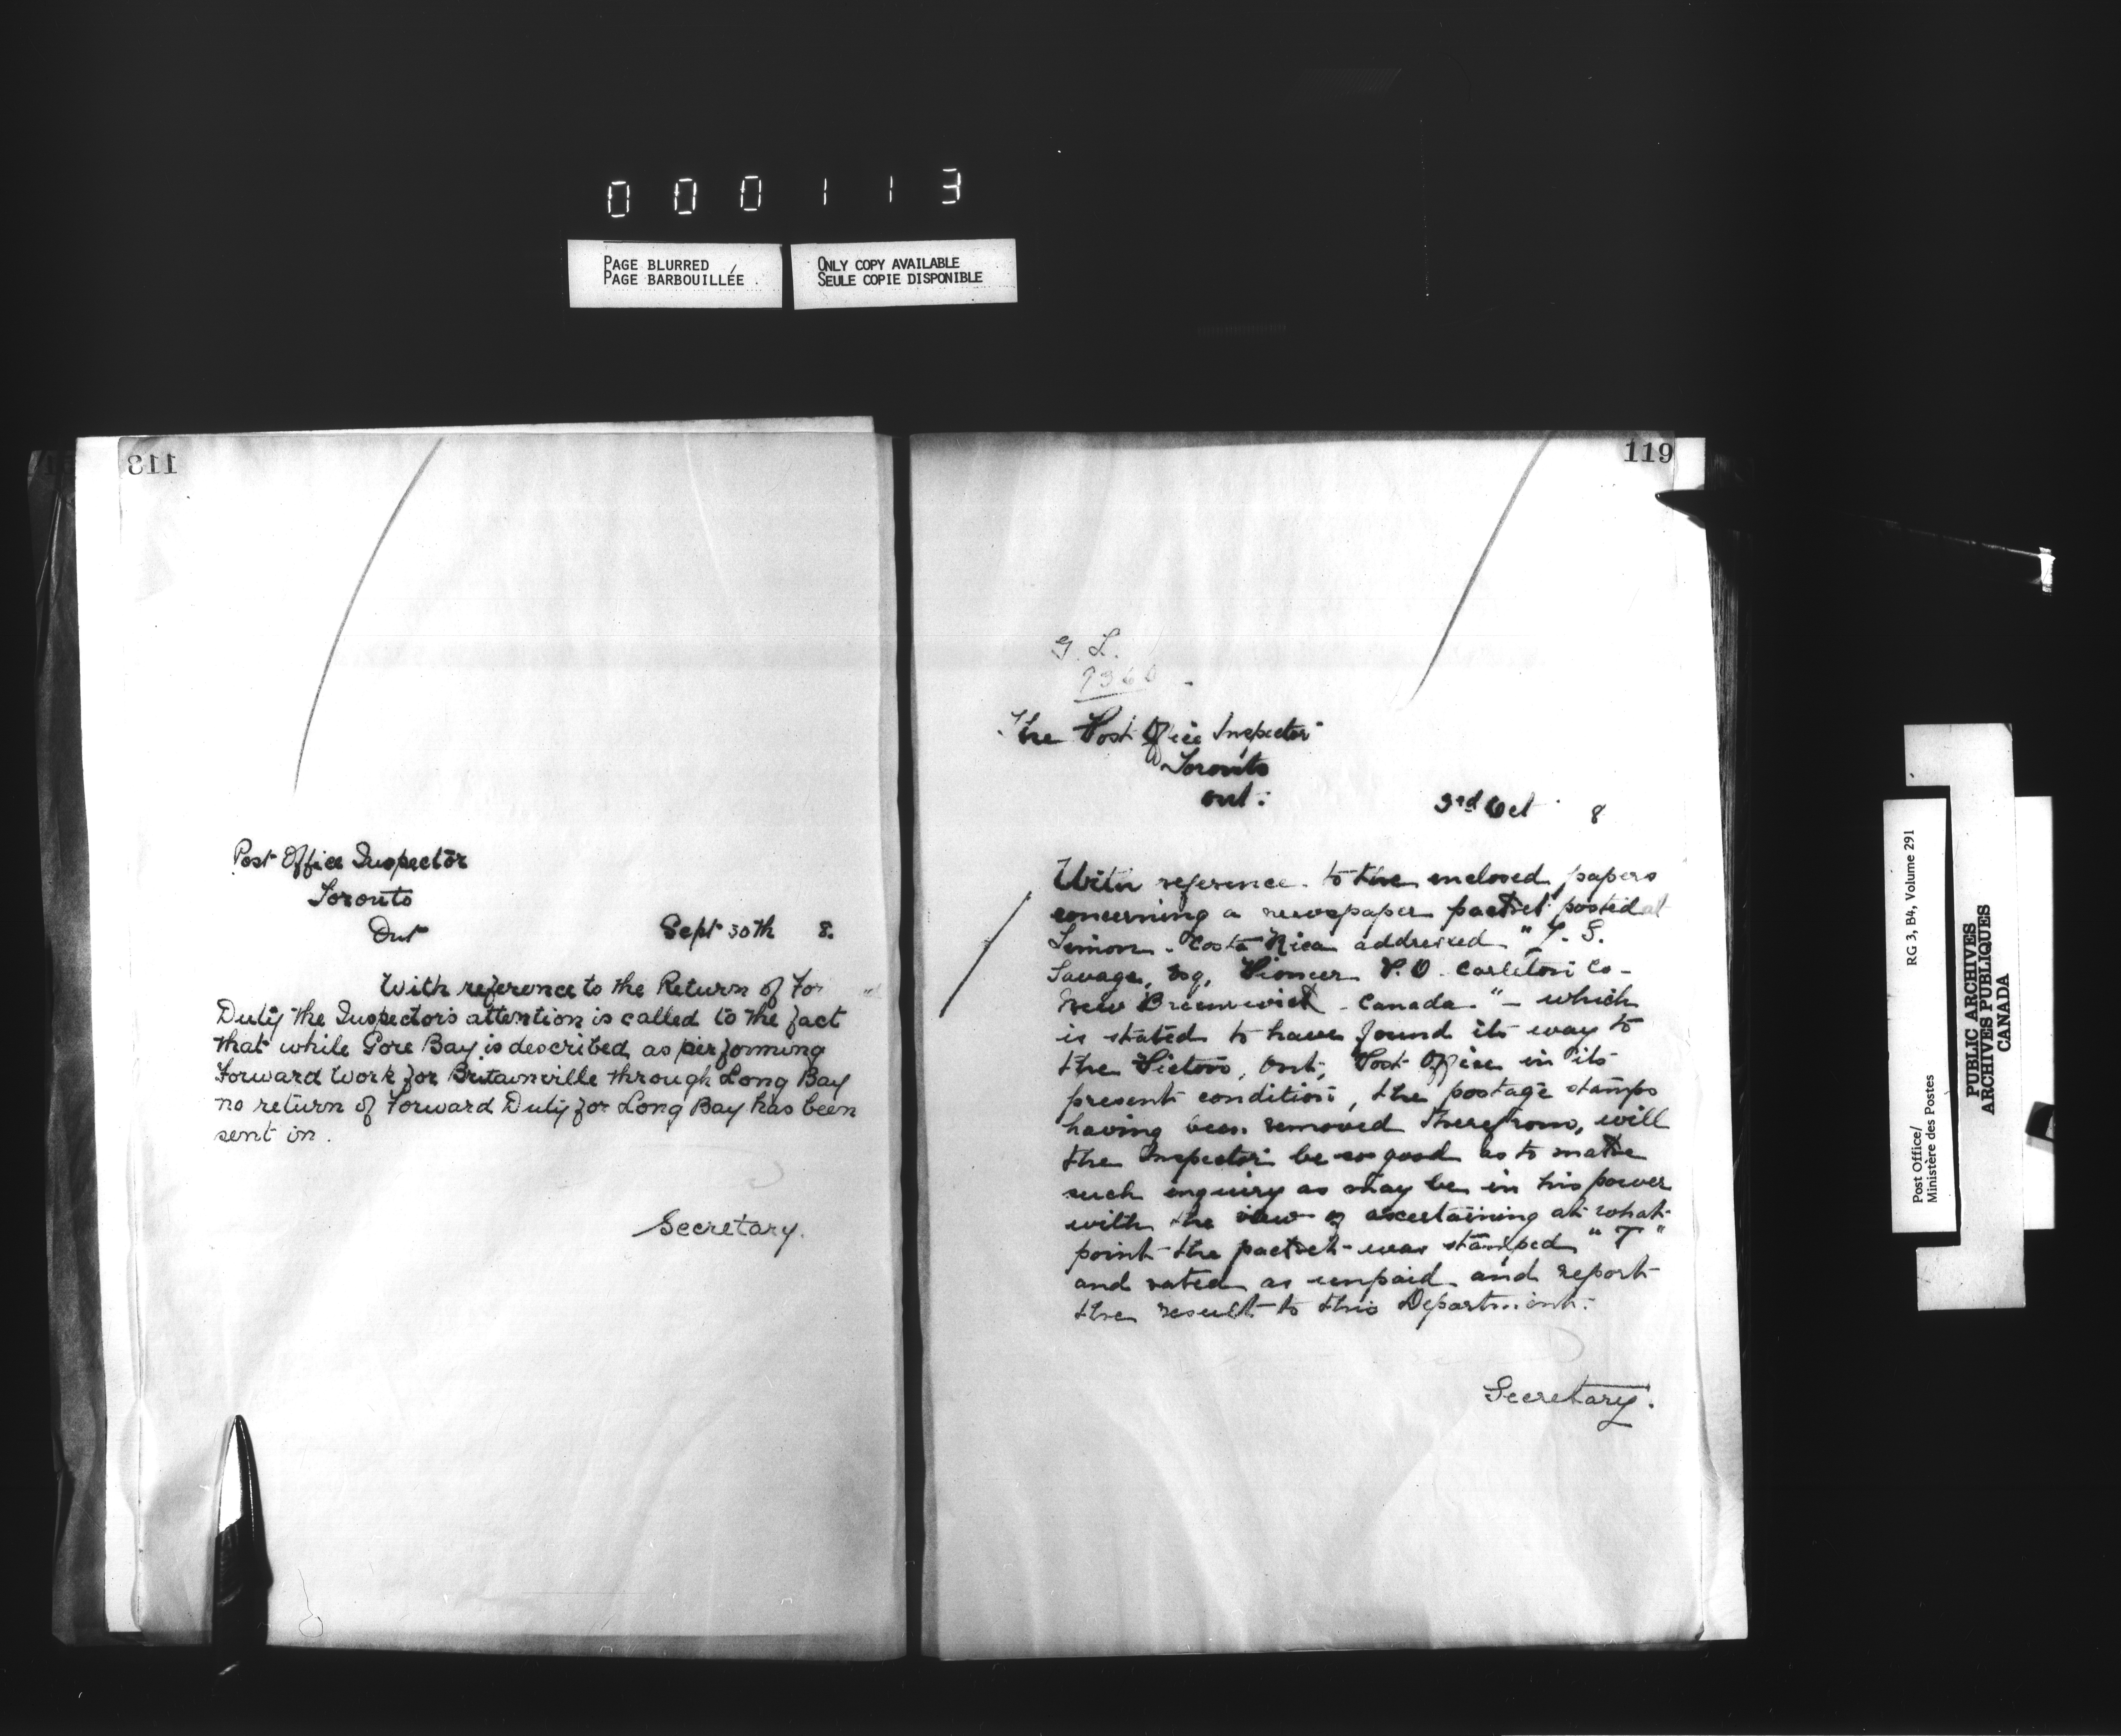 000113
PAGE BLURRED
PAGE BARBOUILLÉE
ONLY COPY AVAILABLE
SEULE COPIE DISPONIBLE
113
Post Office Inspector
Toronto
Ont
Sept 30th 8.
With reference to the Return of For
Duty the Inspector's attention is called to the fact
that while Gore Bay is described as performing
Forward Work for Britainville through Long Bay
no return of Forward Duty for Long Bay has been
sent in.
Secretary.
119
G. L.
9360
The Post Office Inspector
Toronto
Ont.
3rd Oct 8
With reference to the enclosed papers
concerning a newspaper packet posted at
Limon. Costa Rica addressed "T. S.
Savage, Esq, Pioneer P.O. Carleton Co-
New Brunswick - Canada." - which
is stated to have found its way to
the Picton, Ont, Post Office in its
present condition, the postage stamps
having been removed therefrom, will
the Inspector be so good as to make
such inquiry as may be in his power
with the view of ascertaining at what
point the packet was stamped "T"
and rated as unpaid and report
the result to this Department.
Secretary.
Post Office/
Ministère des Postes
RG 3, B4, Volume 291
PUBLIC ARCHIVES
ARCHIVES PUBLIQUES
CANADA